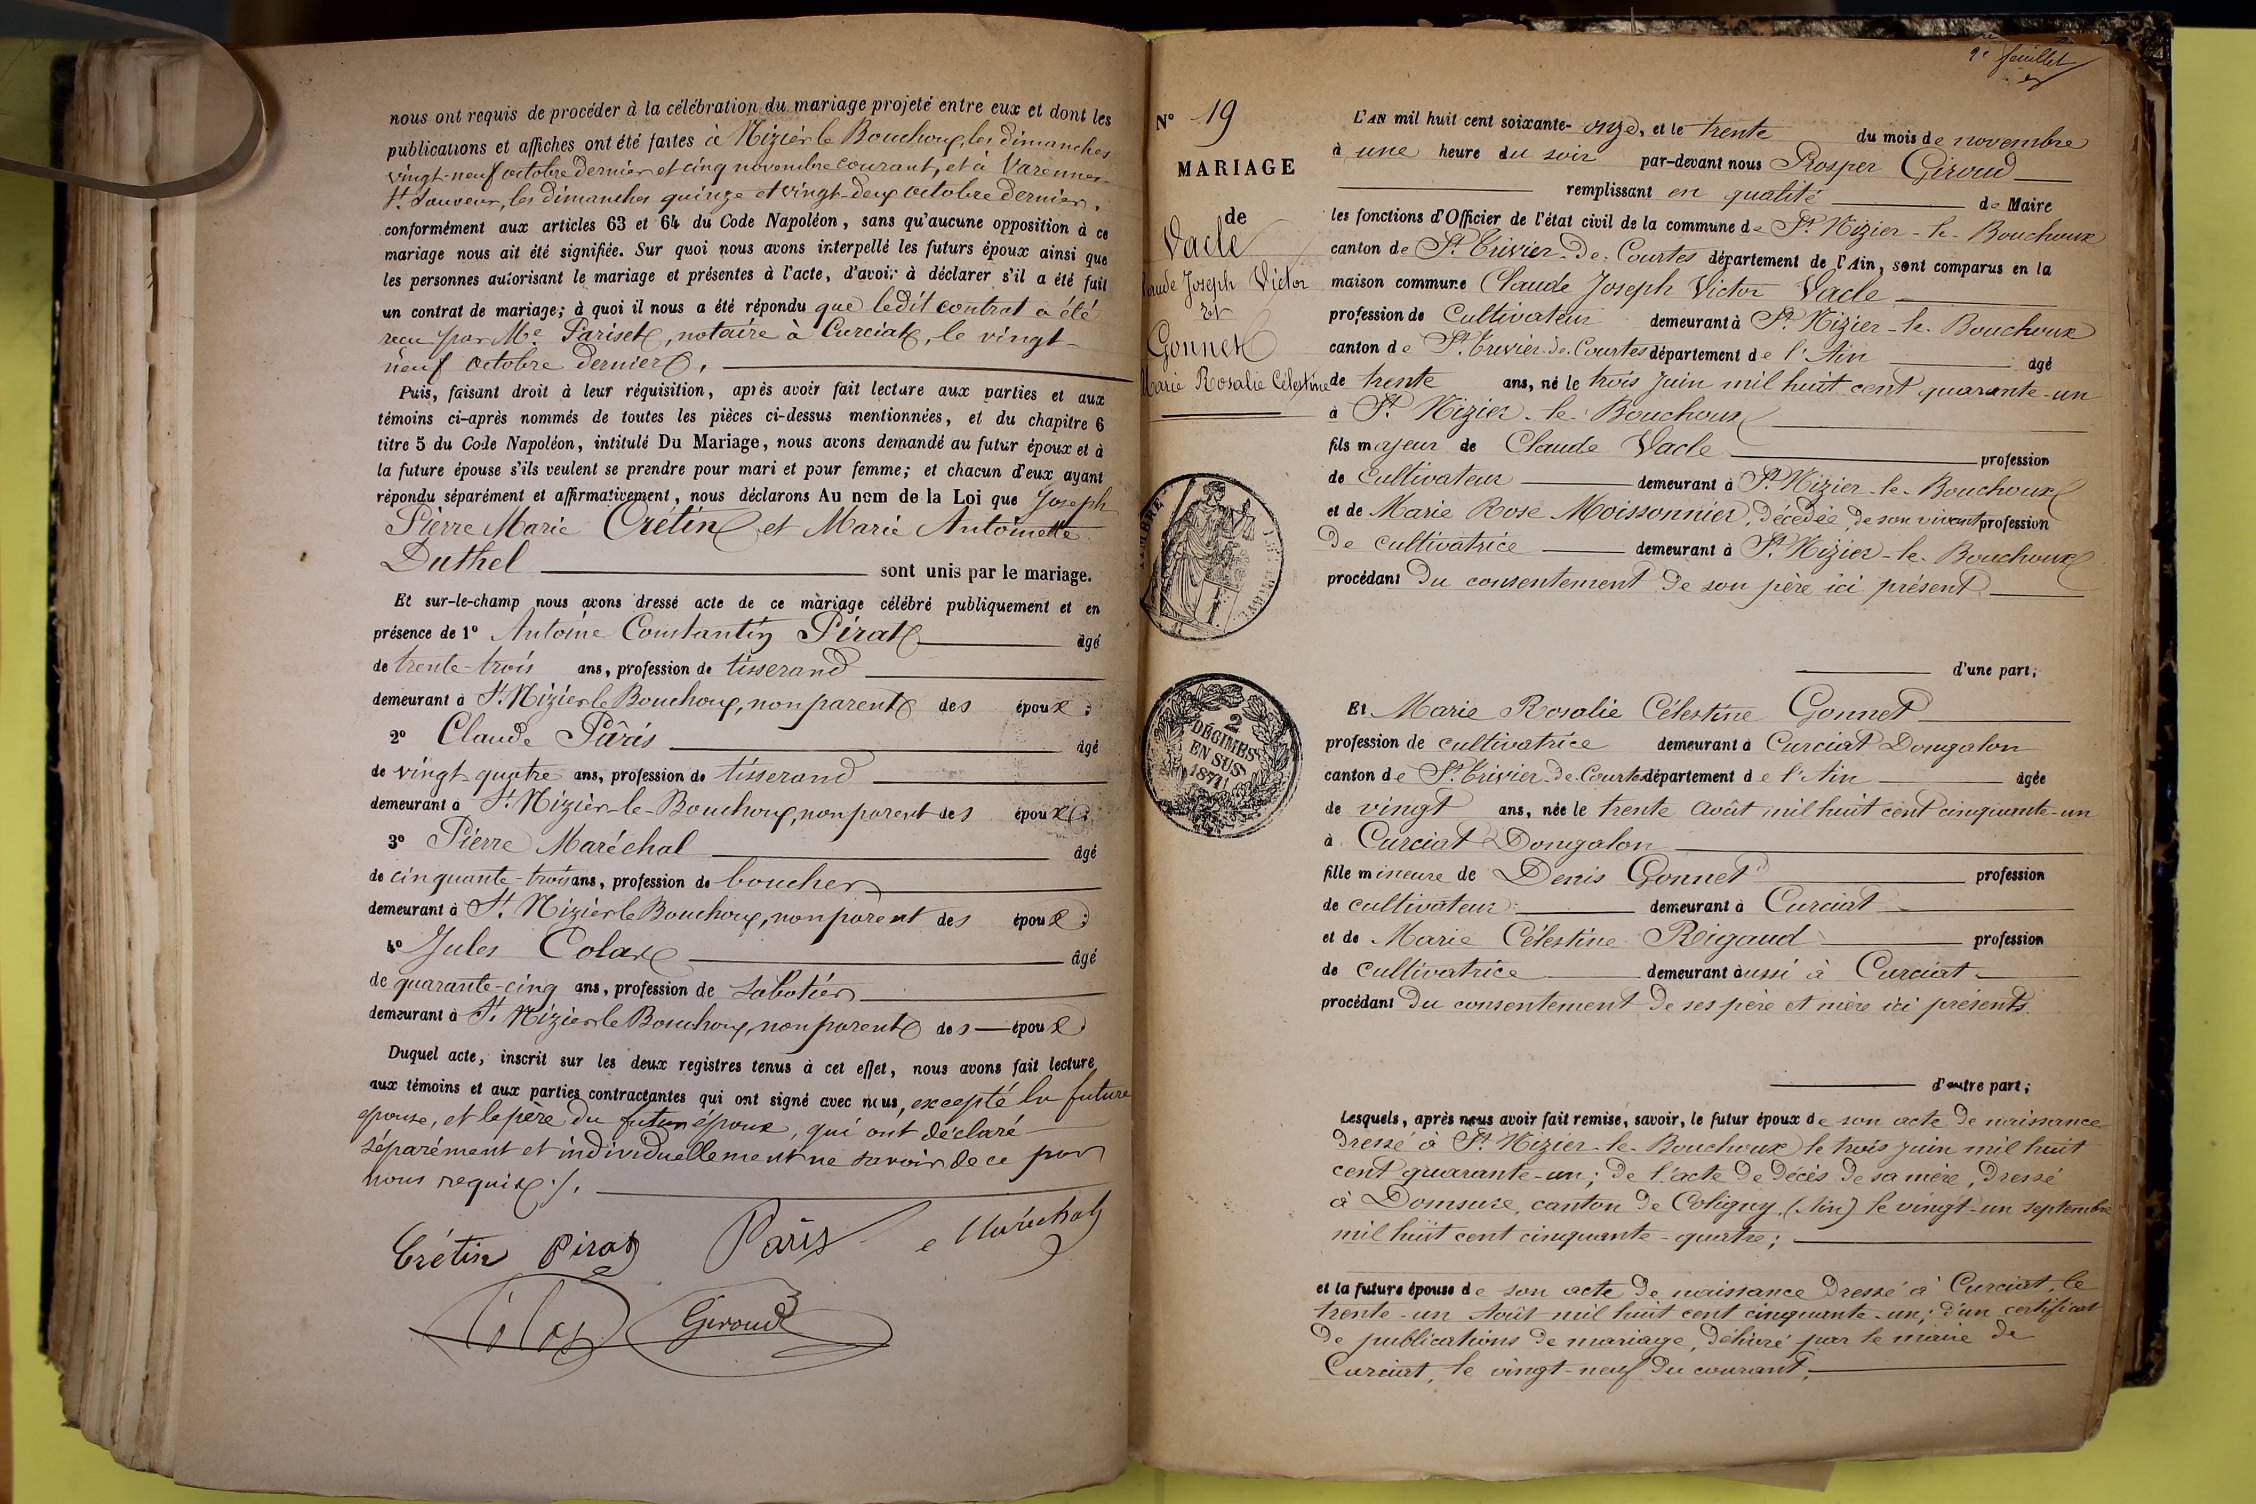 nous ont requis de procéder à la célébration du mariage projeté entre eux et dont les
publications et affiches ont été faites à Nizier le Bouchoux, les dimanches
vingt-neuf octobre dernier et cinq novembre courant, et à Varennes-
St. Sauveur, les dimanches quinze et vingt-deux octobre dernier,
conformément aux articles 63 et 64 du Code Napoléon, sans qu'aucune opposition à ce
mariage nous ait été signifiée. Sur quoi nous avons interpellé les futurs époux ainsi que
les personnes autorisant le mariage et présentes à l'acte, d'avoir à déclarer s'il a été fait
un contrat de mariage; à quoi il nous a été répondu que ledit contrat a été
reçu par Me. Pariset, notaire à Curciat, le vingt-
neuf octobre dernier.
Puis, faisant droit à leur réquisition, après avoir fait lecture aux parties et aux
témoins ci-après nommés de toutes les pièces ci-dessus mentionnées, et du chapitre 6
titre 5 du Code Napoléon, intitulé Du Mariage, nous avons demandé au futur époux et à
la future épouse s'ils veulent se prendre pour mari et pour femme; et chacun d'eux ayant
répondu séparément et affirmativement, nous déclarons Au nom de la Loi que Joseph
Pierre Marie Crétin et Marie Antoinette
Duthel sont unis par le mariage.
Et sur-le-champ nous avons dressé acte de ce mariage célébré publiquement et en
présence de 1° Antoine Constantin Pirat âgé
de trente-trois ans, profession de tisserand
demeurant à St. Nizier le Bouchoux, non parent des époux;
2° Claude Pâris âgé
de vingt-quatre ans, profession de tisserand
demeurant à St. Nizier-le-Bouchoux, non parent des époux;
3° Pierre Maréchal âgé
de cinquante-trois ans, profession de boucher
demeurant à St. Nizier le Bouchoux, non parent des époux;
4° Jules Colas âgé
de quarante-cinq ans, profession de sabotier
demeurant à St. Nizier le Bouchoux, non parent des époux.
Duquel acte, inscrit sur les deux registres tenus à cet effet, nous avons fait lecture
aux témoins et aux parties contractantes qui ont signé avec nous, excepté la future
épouse, et le père du futur époux, qui ont déclaré
séparément et individuellement ne savoir de ce par
nous requis ./.
Crétin Pirat Pâris Maréchal
Colas Giroud
2e feuillet
N° 19
MARIAGE
de
Vacle
Claude Joseph Victor
Et
Gonnet
Marie Rosalie Célestine
TIMBRE
2
DÉCIMES
EN SUS
1871
L'AN mil huit cent soixante-onze, et le trente du mois de novembre
à une heure du soir par-devant nous Prosper Giroud
remplissant en qualité de Maire
les fonctions d'Officier de l'état civil de la commune de St. Nizier-le-Bouchoux
canton de St. Trivier-de-Courtes département de l'Ain, sont comparus en la
maison commune Claude Joseph Victor Vacle
profession de Cultivateur demeurant à St. Nizier-le-Bouchoux
canton de St. Trivier-de-Courtes département de l'Ain âgé
de trente ans, né le trois juin mil huit cent quarante-un
à St. Nizier-le-Bouchoux
fils majeur de Claude Vacle profession
de cultivateur demeurant à St. Nizier-le-Bouchoux
et de Marie Rose Moissonnier, décédée, de son vivant profession
de cultivatrice demeurant à St. Nizier-le-Bouchoux
procédant du consentement de son père ici présent
d'une part;
Et Marie Rosalie Célestine Gonnet
profession de cultivatrice demeurant à Curciat Dongalon
canton de St. Trivier-de-Courtes département de l'Ain âgée
de vingt ans, née le trente août mil huit cent cinquante-un
à Curciat Dongalon
fille mineure de Denis Gonnet profession
de cultivateur demeurant à Curciat
et de Marie Célestine Rigaud profession
de cultivatrice demeurant aussi à Curciat
procédant du consentement de ses père et mère ici présents.
d'autre part;
Lesquels, après nous avoir fait remise, savoir, le futur époux de son acte de naissance
dressé à St. Nizier-le-Bouchoux le trois juin mil huit
cent quarante-un; de l'acte de décès de sa mère, dressé
à Domsure, canton de Coligny (Ain) le vingt-un septembre
mil huit cent cinquante-quatre;
et la future épouse de son acte de naissance dressé à Curciat, le
trente-un Août mil huit cent cinquante-un; d'un certificat
de publications de mariage, délivré par le maire de
Curciat, le vingt-neuf du courant,